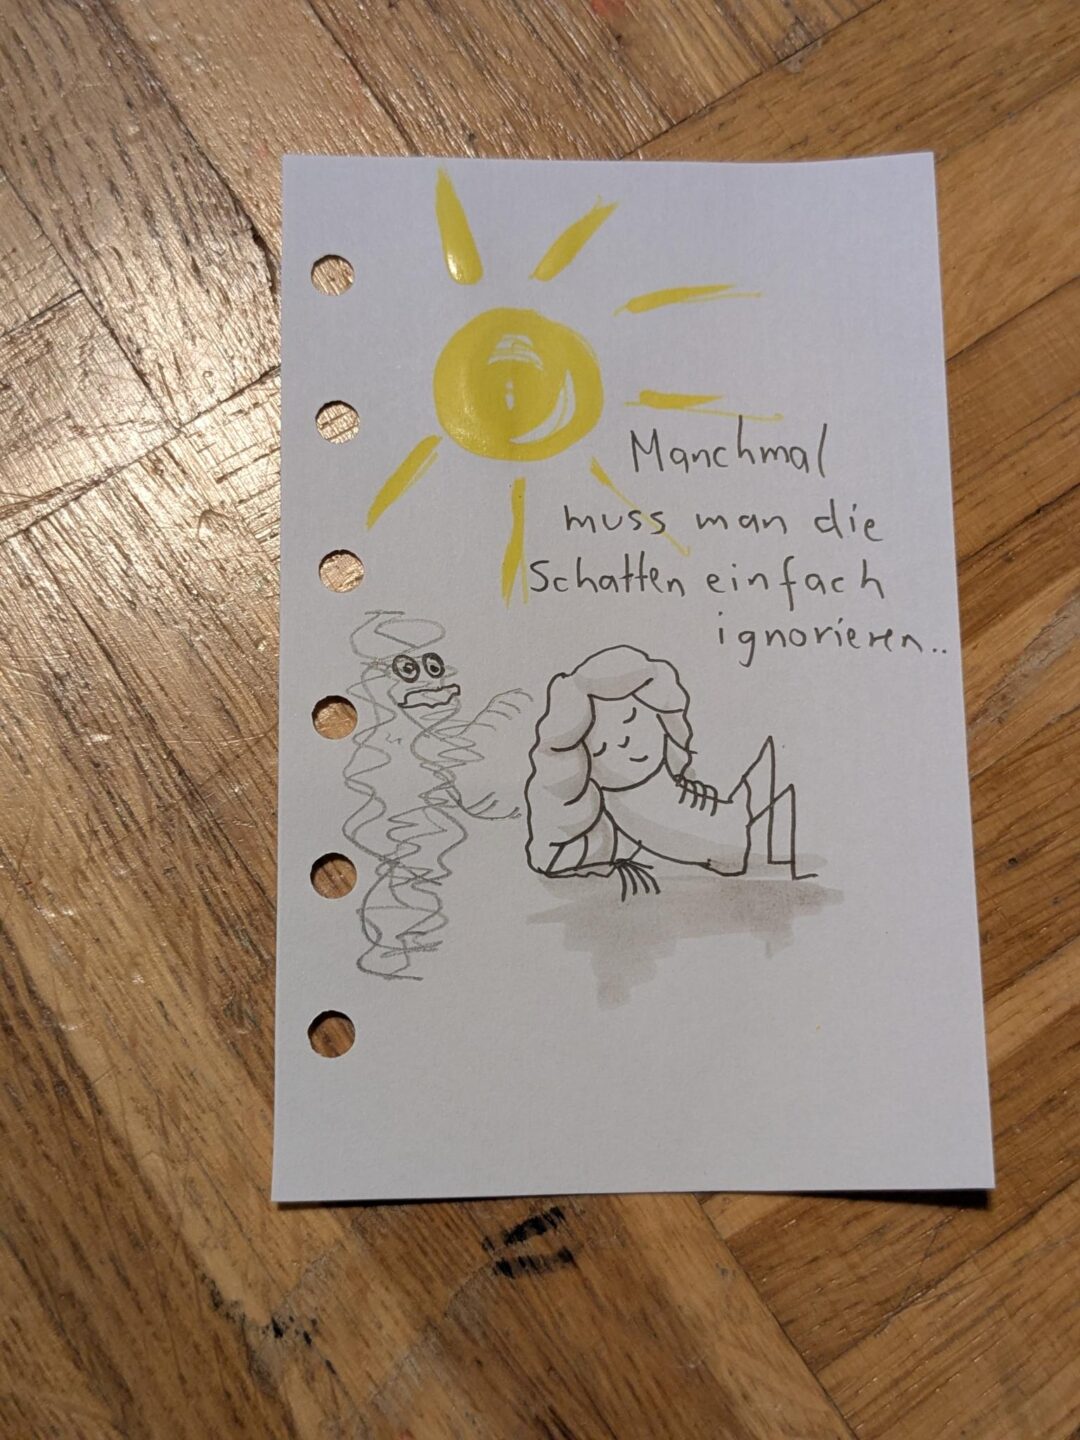 Manchmal
muss man die
Schatten einfach
ignorieren..